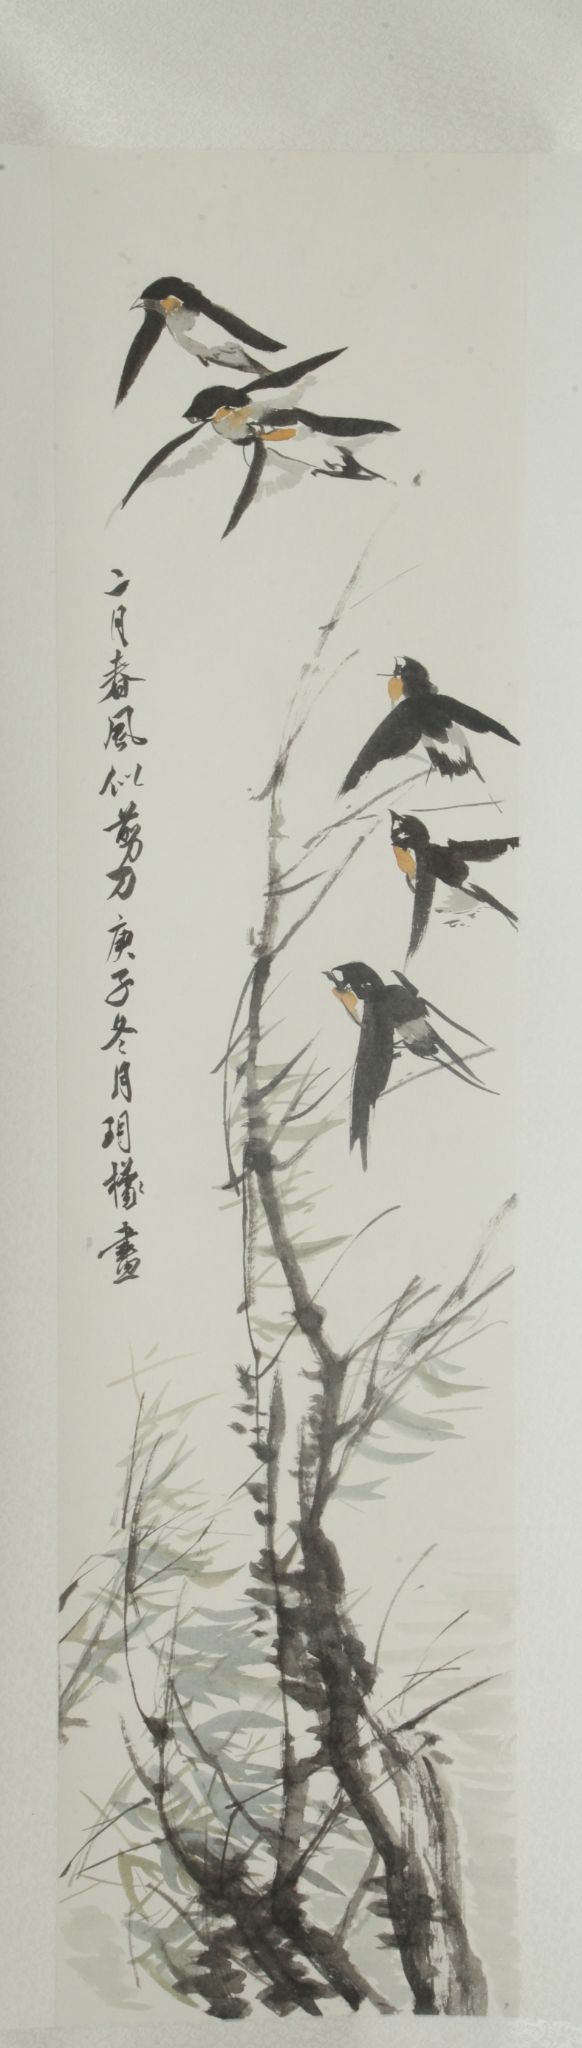 二月春風似剪刀庚子冬月玥畫